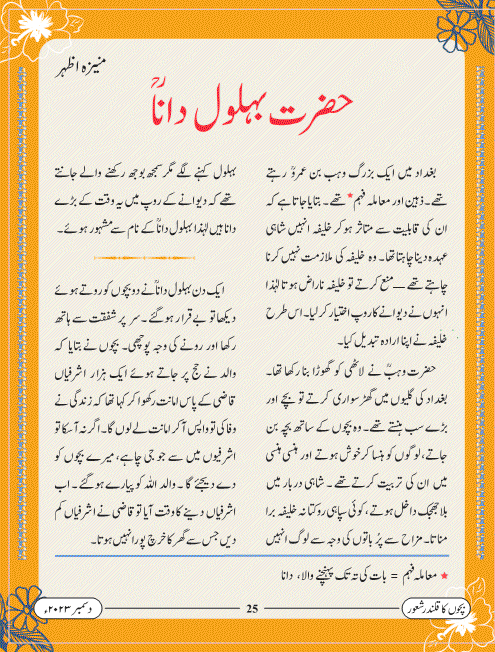 منیزہ اظہر
حضرت بہلول داناؒ
بغداد میں ایک بزرگ وہب بن عمروؒ رہتے
تھے۔ ذہین اور معاملہ فہم * تھے۔ بتایا جاتا ہے کہ
ان کی قابلیت سے متاثر ہو کر خلیفہ انہیں شاہی
عہدہ دینا چاہتا تھا۔ وہ خلیفہ کی ملازمت نہیں کرنا
چاہتے تھے — منع کرتے تو خلیفہ ناراض ہوتا لہٰذا
انہوں نے دیوانے کا روپ اختیار کر لیا۔ اس طرح
خلیفہ نے اپنا ارادہ تبدیل کیا۔
حضرت وہبؒ نے لاٹھی کو گھوڑا بنا رکھا تھا۔
بغداد کی گلیوں میں گھڑ سواری کرتے تو بچے اور
بڑے سب ہنستے تھے۔ وہ بچوں کے ساتھ بچہ بن
جاتے، لوگوں کو ہنسا کر خوش ہوتے اور ہنسی ہنسی
میں ان کی تربیت کرتے تھے۔ شاہی دربار میں
بلاجھجک داخل ہوتے، کوئی سپاہی روکتا نہ خلیفہ برا
مناتا۔ مزاح سے پُر باتوں کی وجہ سے لوگ انہیں
بہلول کہنے لگے مگر سمجھ بوجھ رکھنے والے جانتے
تھے کہ دیوانے کے روپ میں یہ وقت کے بڑے
دانا ہیں لہٰذا بہلول داناؒ کے نام سے مشہور ہوئے۔
ایک دن بہلول داناؒ نے دو بچوں کو روتے ہوئے
دیکھا تو بے قرار ہو گئے۔ سر پر شفقت سے ہاتھ
رکھا اور رونے کی وجہ پوچھی۔ بچوں نے بتایا کہ
والد نے حج پر جاتے ہوئے ایک ہزار اشرفیاں
قاضی کے پاس امانت رکھوا کر کہا تھا کہ زندگی نے
وفا کی تو واپس آ کر امانت لے لوں گا۔ اگر نہ آ سکا تو
اشرفیوں میں سے جو جی چاہے، میرے بچوں کو
دے دیجئے گا۔ والد اللہ کو پیارے ہو گئے۔ اب
اشرفیاں دینے کا وقت آیا تو قاضی نے اشرفیاں کم
دیں جس سے گھر کا خرچ پورا نہیں ہوتا۔
* معاملہ فہم = بات کی تہ تک پہنچنے والا، دانا
بچوں کا قلندر شعور
25
دسمبر ۲۰۲۳ء